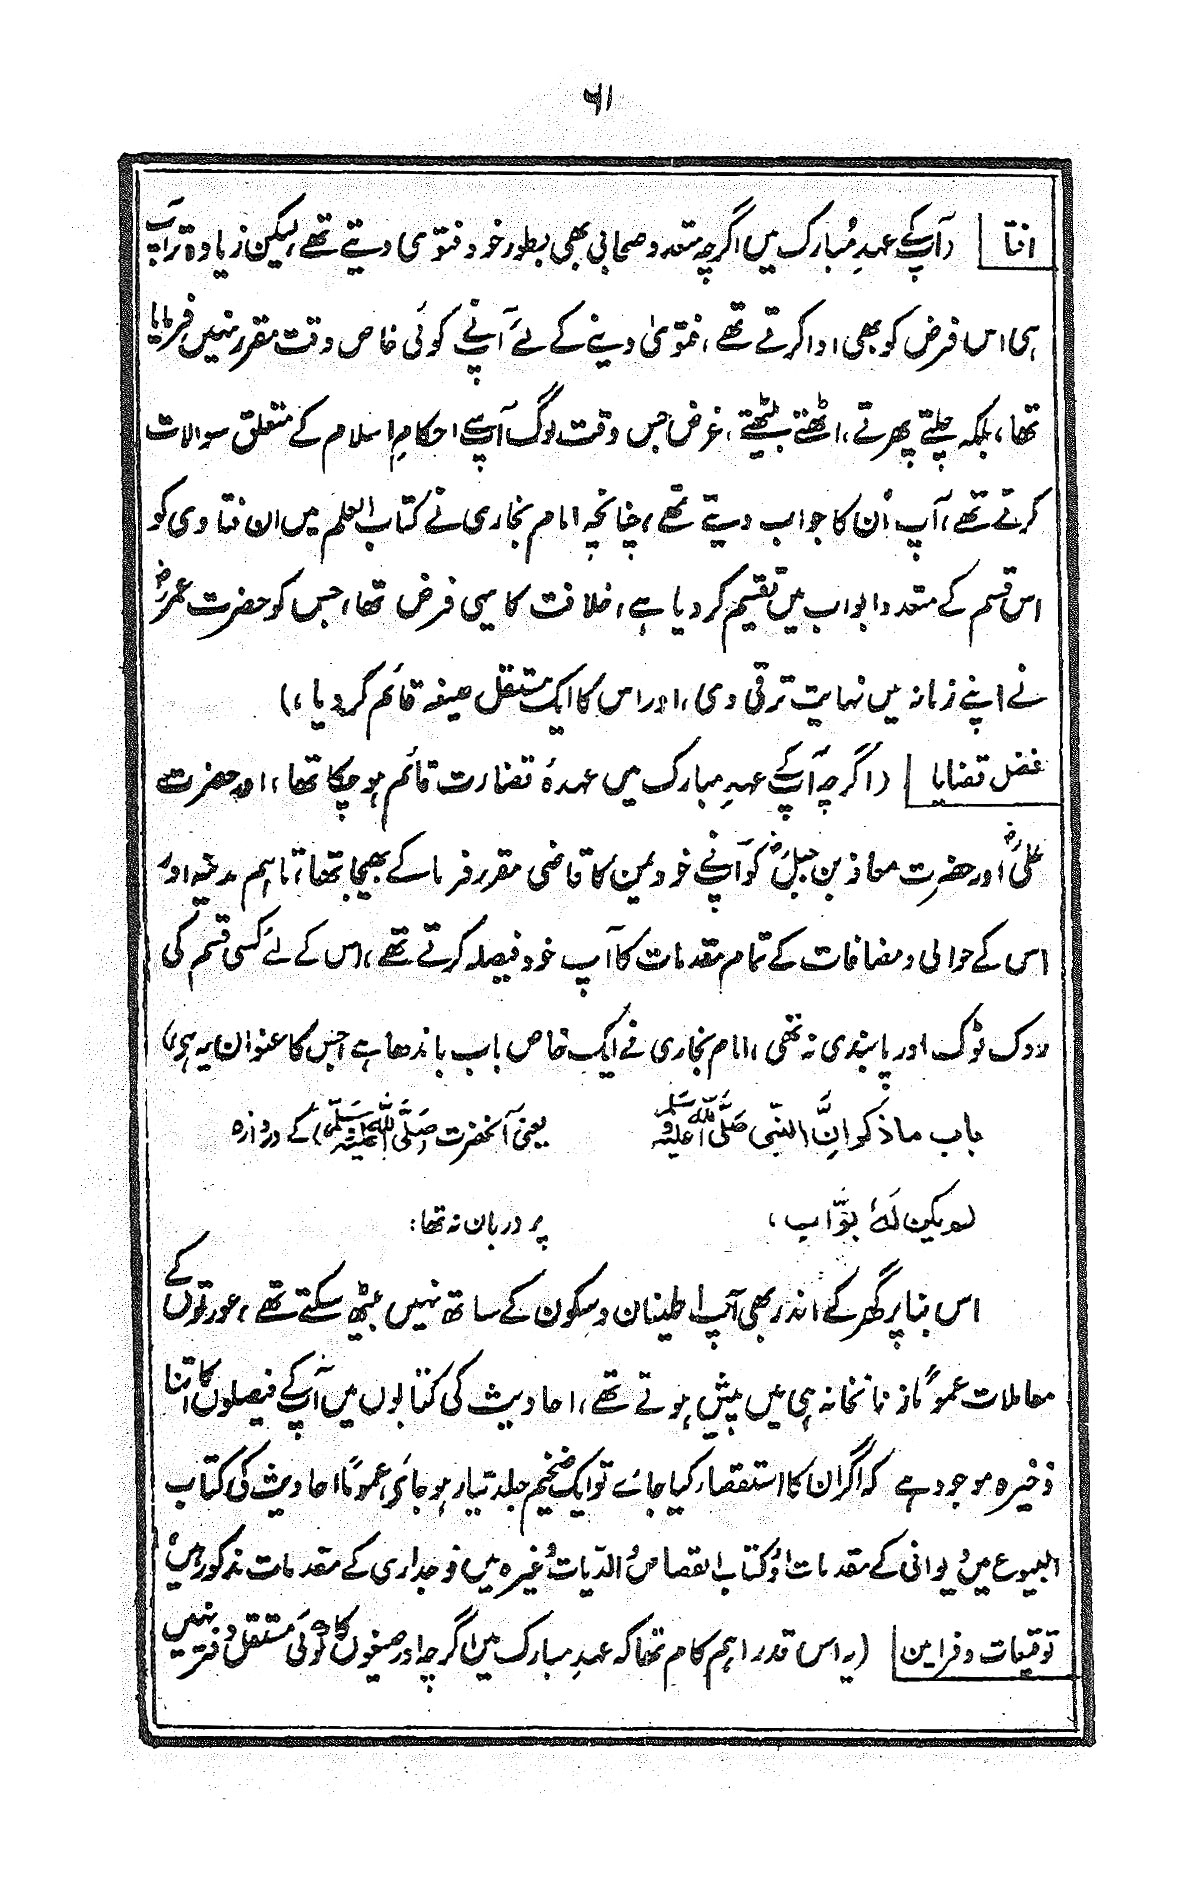 ۶۱
افتا (آپ کے عہدِ مُبارک میں اگرچہ متعدد صحابی بھی بطور خود فتوی دیتے تھے، لیکن زیادہ تر آپ
ہی اس فرض کو بھی ادا کرتے تھے، فتویٰ دینے کے لئے آپنے کوئی خاص وقت مقرر نہیں فرمایا
تھا، بلکہ چلتے پھرتے، اٹھتے بیٹھتے، غرض جس وقت لوگ آپ سے احکامِ اسلام کے متعلق سوالات
کرتے تھے، آپ اُن کا جواب دیتے تھے، چنانچہ امام بخاری نے کتاب العلم میں ان فتاوی کو
اس قسم کے متعدد ابواب میں تقسیم کر دیا ہے، خلافت کا یہی فرض تھا، جس کو حضرت عمرؓ
نے اپنے زمانہ میں نہایت ترقی دی، اور اس کا ایک مستقل صیغہ قائم کر دیا،)
فصل قضایا (اگرچہ آپ کے عہدِ مبارک میں عہدۂ قضارت قائم ہو چکا تھا، اور حضرت
علیؓ اور حضرت معاذ بن جبلؓ کو آپنے خود یمن کا قاضی مقرر فرما کے بھیجا تھا، تاہم مدینہ اور
اس کے حوالی و مضافات کے تمام مقدمات کا آپ خود فیصلہ کرتے تھے، اس کے لئے کسی قسم کی
روک ٹوک اور پابندی نہ تھی، امام بخاری نے ایک خاص باب باندھا ہے جس کا عنوان یہ ہی)
باب ماذکر انَّ النبّی صَلَّی اللّٰہ علیہ وسلم یعنی آنحضرت (صَلَّی اللّٰہ علیہ وسلّم) کے دروازہ
لم یکن لہٗ بوّاب، پر دربان نہ تھا:
اس بنا پر گھر کے اندر بھی آپ اطمینان و سکون کے ساتھ نہیں بیٹھ سکتے تھے، عورتوں کے
معاملات عموماً زنانخانہ ہی میں پیش ہوتے تھے، احادیث کی کتابوں میں آپ کے فیصلوں کا اتنا
ذخیرہ موجود ہے کہ اگر ان کا استقصار کیا جائے تو ایک ضخیم جلد تیار ہو جائے، عموماً احادیث کی کتاب
البیوع میں دیوانی کے مقدمات اور کتاب القصاص والدّیات وغیرہ میں فوجداری کے مقدمات مذکور ہیں،
توقیعات و فرامین (یہ اس قدر اہم کام تھا کہ عہدِ مبارک میں اگرچہ اور صیغوں کا کوئی مستقل دفتر نہیں